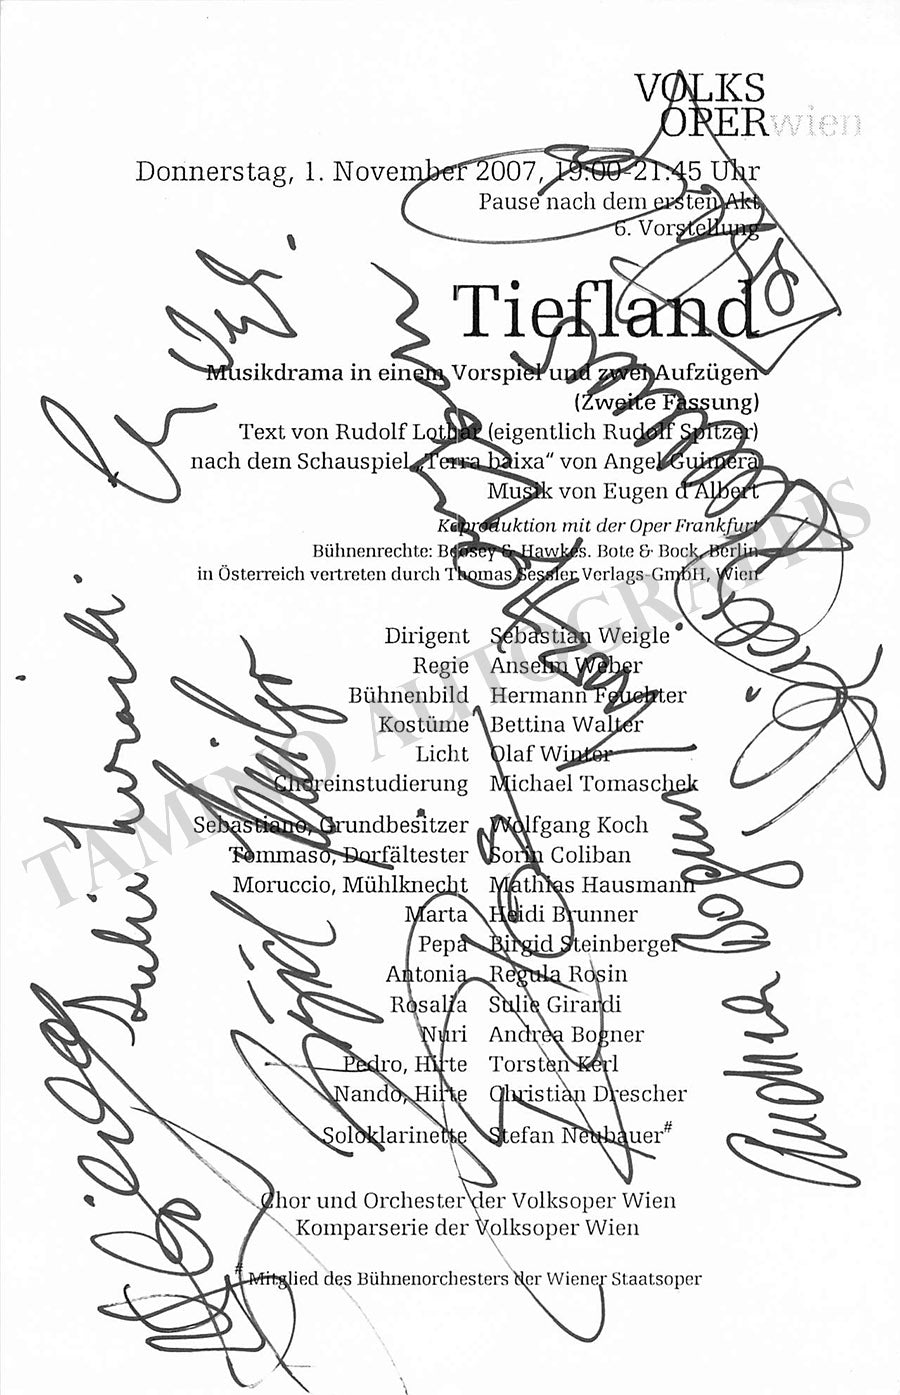 VOLKS
OPERwien
Donnerstag, 1. November 2007, 19:00-21:45 Uhr
Pause nach dem ersten Akt
6. Vorstellung
Tiefland
Musikdrama in einem Vorspiel und zwei Aufzügen
(Zweite Fassung)
Text von Rudolf Lothar (eigentlich Rudolf Spitzer)
nach dem Schauspiel „Terra baixa“ von Angel Guimerà
Musik von Eugen d'Albert
Koproduktion mit der Oper Frankfurt
Bühnenrechte: Boosey & Hawkes. Bote & Bock, Berlin
in Österreich vertreten durch Thomas Sessler Verlags-GmbH, Wien
Dirigent Sebastian Weigle
Regie Anselm Weber
Bühnenbild Hermann Feuchter
Kostüme Bettina Walter
Licht Olaf Winter
Choreinstudierung Michael Tomaschek
Sebastiano, Grundbesitzer Wolfgang Koch
Tommaso, Dorfältester Sorin Coliban
Moruccio, Mühlknecht Mathias Hausmann
Marta Heidi Brunner
Pepa Birgid Steinberger
Antonia Regula Rosin
Rosalia Sulie Girardi
Nuri Andrea Bogner
Pedro, Hirte Torsten Kerl
Nando, Hirte Christian Drescher
Soloklarinette Stefan Neubauer#
Chor und Orchester der Volksoper Wien
Komparserie der Volksoper Wien
# Mitglied des Bühnenorchesters der Wiener Staatsoper
Sulie Girardi
Birgid
Andrea Bogner
TAMINO AUTOGRAPHS